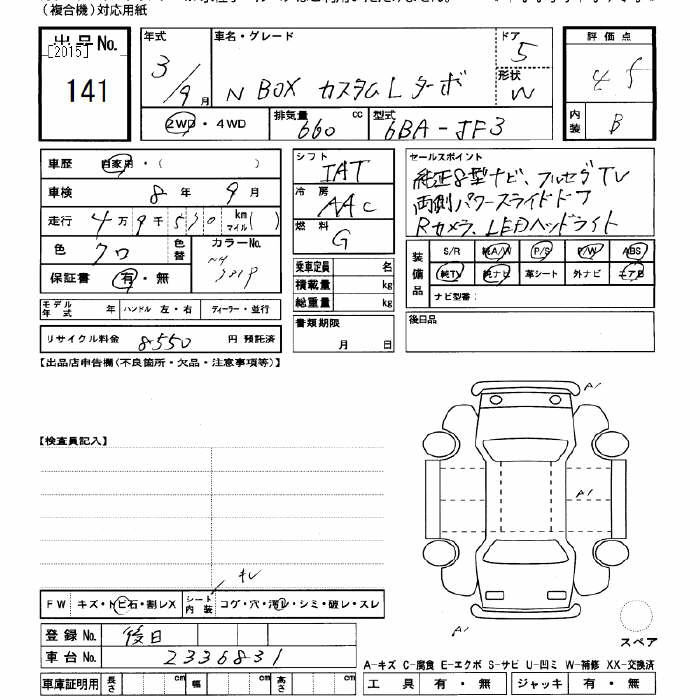 （複合機）対応用紙
出品No.
[2015]
141
年式
3/9月
車名・グレード
N BOX カスタムL ターボ
ドア
5
形状
W
評価点
4.5
内装
B
2WD・4WD
排気量
660 cc
型式
6BA-JF3
車歴 自家用・（ ）
車検 8年 9月
走行 4万9千510 km マイル( )
色 クロ
色替
カラーNo.
保証書 有・無
モデル年式 年 ハンドル 左・右 ディーラー・並行
リサイクル料金 8550 円 預託済
シフト
IAT
冷房
AAC
燃料
G
乗車定員 名
積載量 kg
総重量 kg
書類期限
月 日
セールスポイント
純正8型ナビ、フルセグTV
両側パワースライドドア
Rカメラ、LEDヘッドライト
装備品
S/R 純A/W P/S P/W ABS
純TV 純ナビ 革シート 外ナビ エアB
ナビ型番：
後日品
【出品店申告欄(不良箇所・欠品・注意事項等)】
【検査員記入】
A1
A1
A1
キレ
FW キズ・トビ石・割レX シート内装 コゲ・穴・汚レ・シミ・破レ・スレ
登録No. 後日
車台No. 2336831
車庫証明用 長さ cm 幅 cm 高さ cm
スペア
A-キズ C-腐食 E-エクボ S-サビ U-凹ミ W-補修 XX-交換済
工具 有・無 ジャッキ 有・無